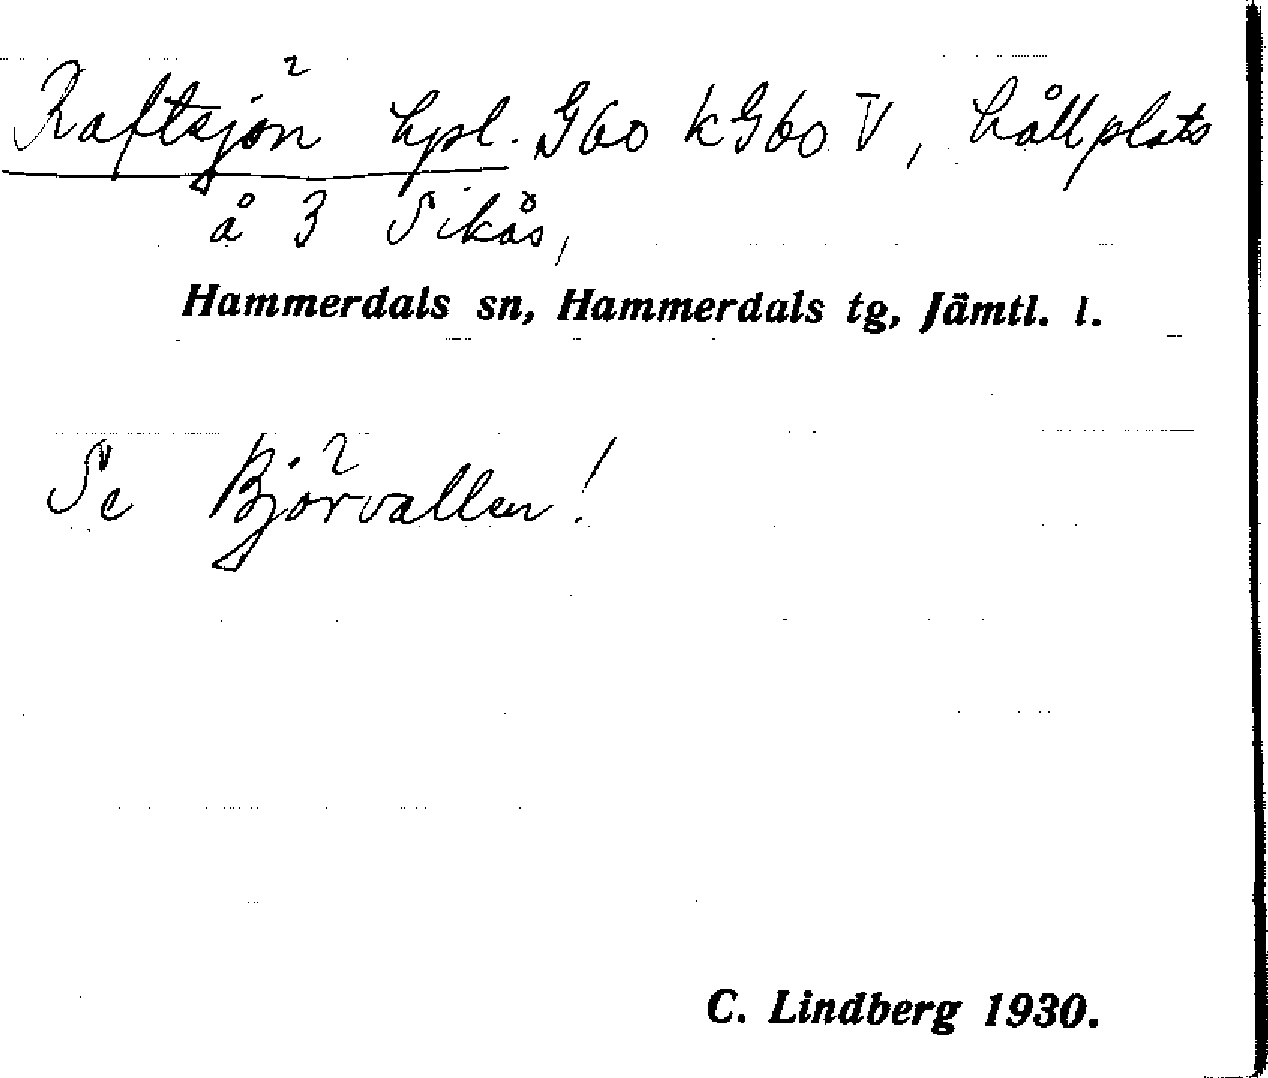 Raftsjön hpl. G60 kG60 V, hållplats
å 3 Sikås,
Hammerdals sn, Hammerdals tg, Jämtl. l.
Se Björvallen!
C. Lindberg 1930.